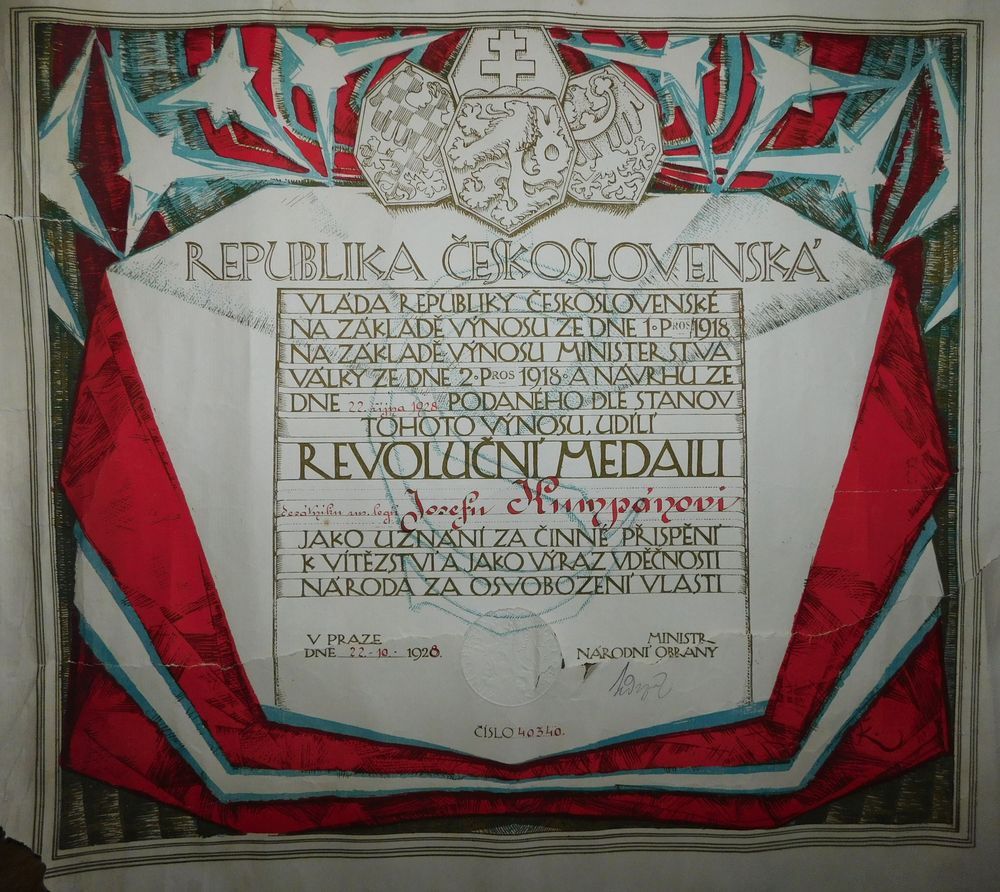 REPUBLIKA ČESKOSLOVENSKÁ
VLÁDA REPUBLIKY ČESKOSLOVENSKÉ
NA ZÁKLADĚ VÝNOSU ZE DNE 1. PROS 1918
NA ZÁKLADĚ VÝNOSU MINISTERSTVA
VÁLKY ZE DNE 2. PROS 1918. A NÁVRHU ZE
DNE 22. října 1928 PODANÉHO DLE STANOV
TOHOTO VÝNOSU, UDÍLÍ
REVOLUČNÍ MEDAILI
Josefu Kumpánovi
JAKO UZNÁNÍ ZA ČINNÉ PŘISPĚNÍ
K VÍTĚZSTVÍ A JAKO VÝRAZ VDĚČNOSTI
NÁRODA ZA OSVOBOZENÍ VLASTI
V PRAZE
DNE 22.-10.- 1928.
MINISTR
NÁRODNÍ OBRANY
ČÍSLO 40340.